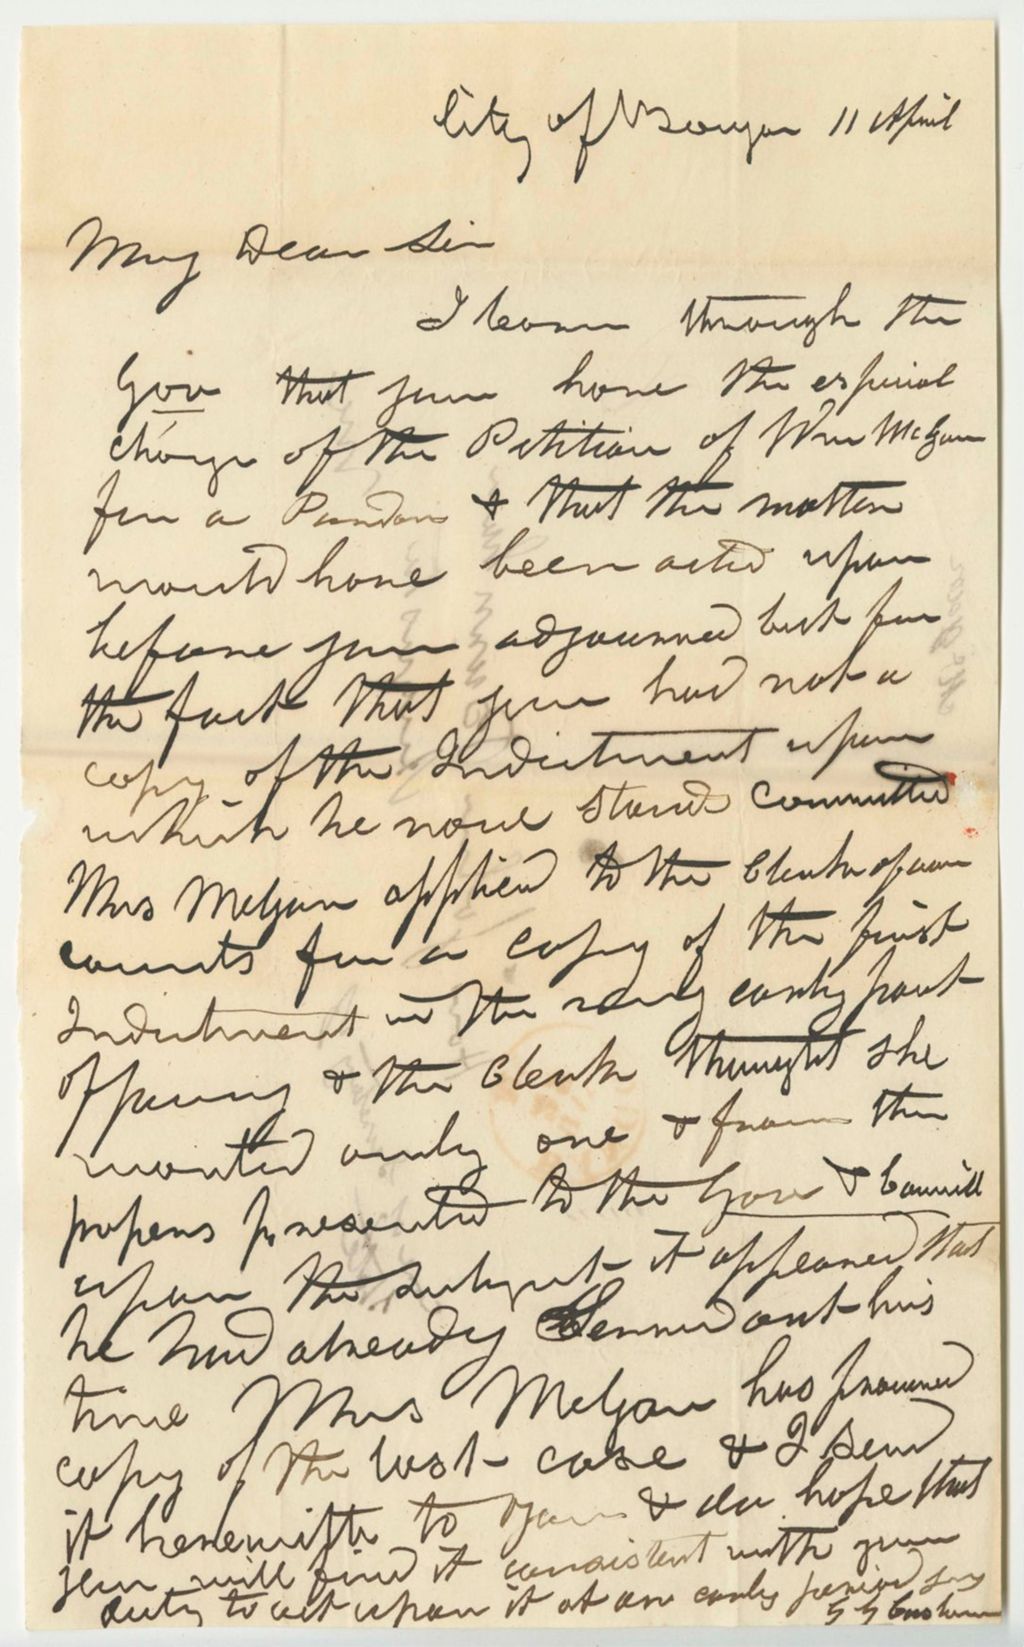 City of Bangor 11 April
My Dear Sir
I learn through the
Gov that you have the especial
charge of the Petition of Wm McGau
for a Pardon & that the matter
would have been acted upon
before you adjourned but for
the fact that you had not a
copy of the Indictment upon
which he now stands committed
Mrs McGau applied to the Clerk of our
courts for a copy of the first
Indictment in the very early part
of &  the Clerk thought she
wanted only one & from the
papers presented to the Gov & Council
upon the subject it appeared that
he had already Served out his
time Mrs McGau has procured
copy of the last case & I send
it herewith to you & do hope that
you will find it consistent with your
duty to act upon it at an early period
G G Cushman